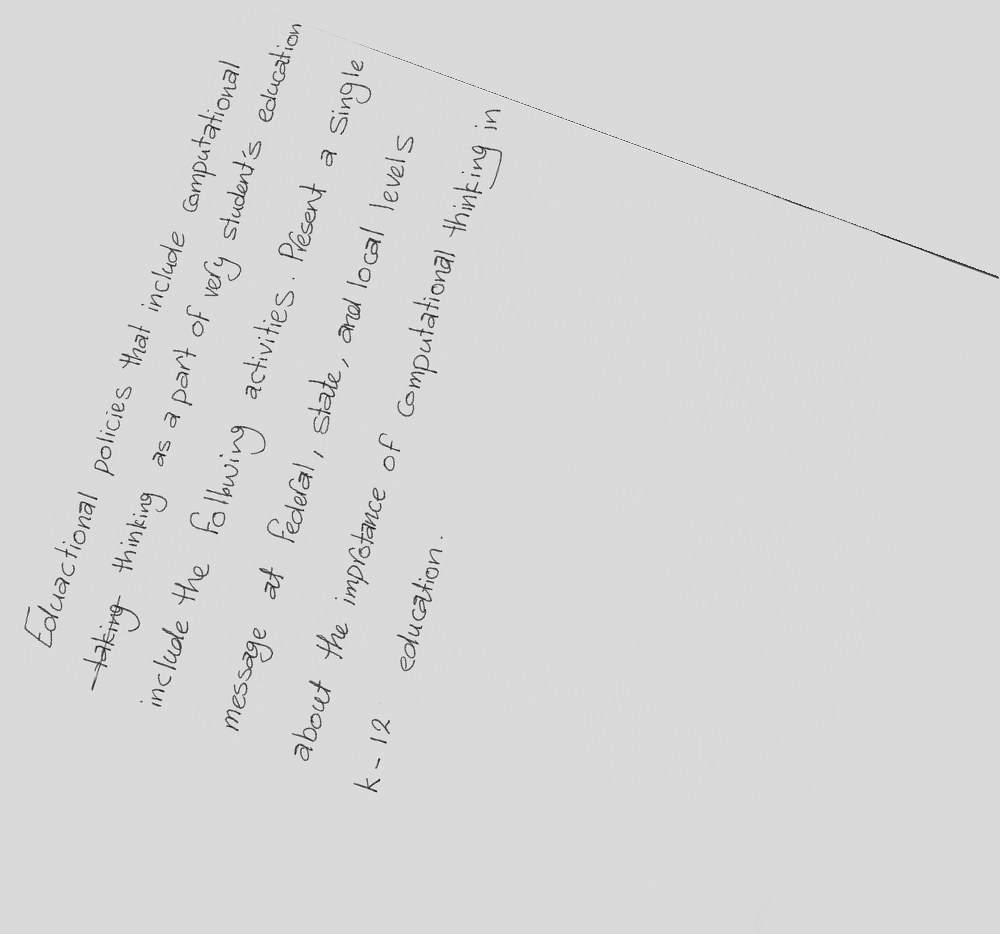 Eduactional policies that include computational
~~taking~~ thinking as a part of very student's education
include the following activities. Present a single
message at federal, state, and local levels
about the improtance of computational thinking in
K-12 education.